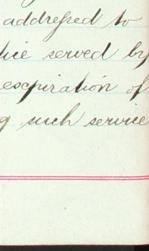 addressed to
served by
expiration of
such service